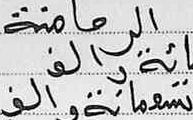 الرحامنة
ائة والف
تسعمائة والف